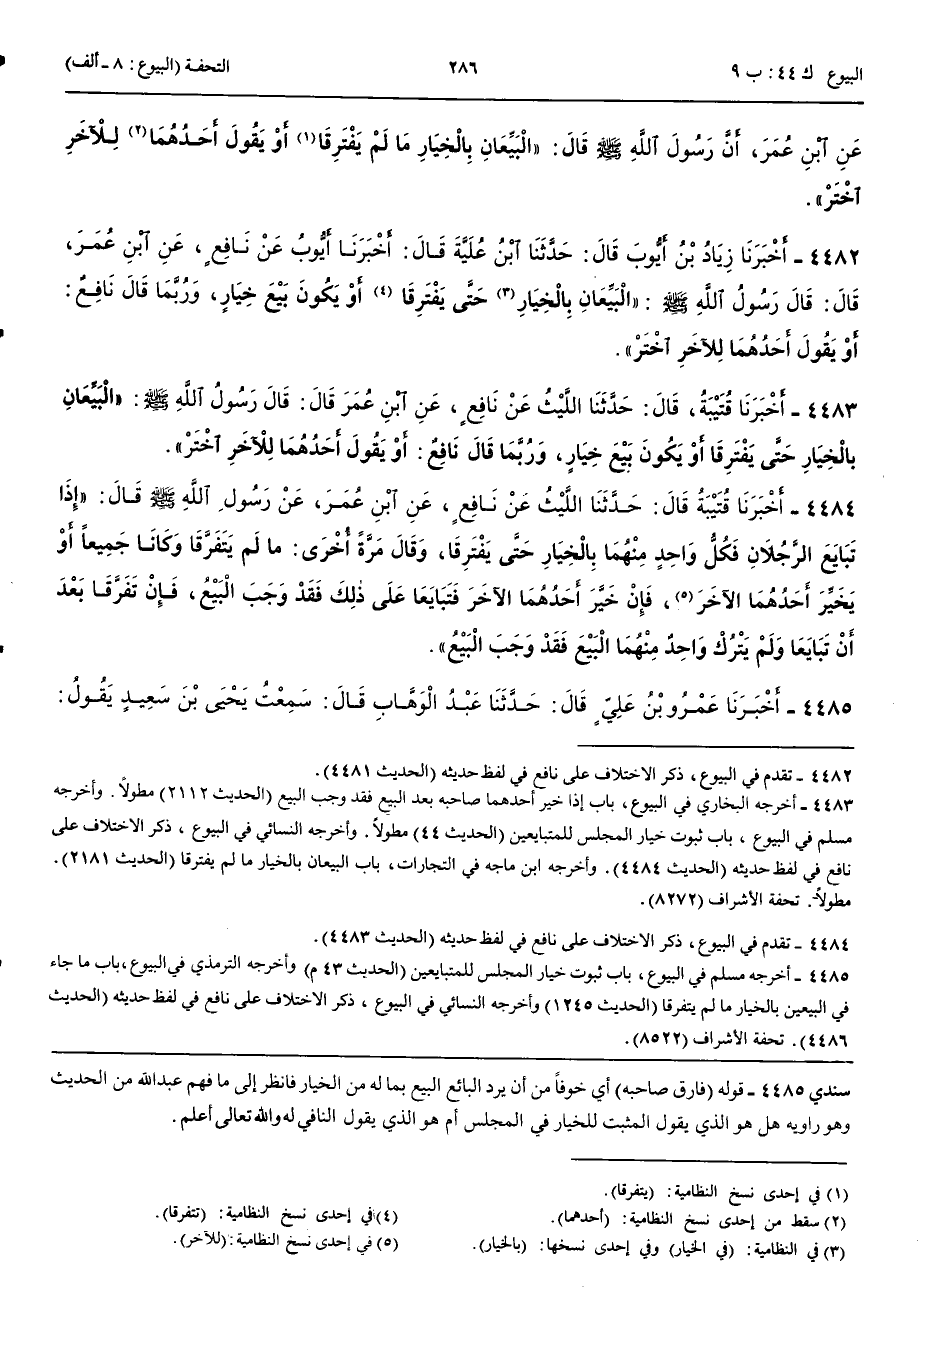 البيوع ك ٤٤: ب ٩
٢٨٦
التحفة (البيوع: ٨ - ألف)
عَنِ ٱبْنِ عُمَرَ، أَنَّ رَسُولَ ٱللَّهِ ﷺ قَالَ: «الْبَيِّعَانِ بِالْخِيَارِ مَا لَمْ يَفْتَرِقَا(١) أَوْ يَقُولَ أَحَدُهُمَا(٢) لِلْآخَرِ
ٱخْتَرْ».
٤٤٨٢ - أَخْبَرَنَا زِيَادُ بْنُ أَيُّوبَ قَالَ: حَدَّثَنَا ابْنُ عُلَيَّةَ قَالَ: أَخْبَرَنَا أَيُّوبُ عَنْ نَافِعٍ، عَنِ ٱبْنِ عُمَرَ،
قَالَ: قَالَ رَسُولُ ٱللَّهِ ﷺ: «الْبَيِّعَانِ بِالْخِيَارِ(٣) حَتَّى يَفْتَرِقَا (٤) أَوْ يَكُونَ بَيْعَ خِيَارٍ، وَرُبَّمَا قَالَ نَافِعٌ:
أَوْ يَقُولَ أَحَدُهُمَا لِلآخَرِ ٱخْتَرْ».
٤٤٨٣ - أَخْبَرَنَا قُتَيْبَةُ، قَالَ: حَدَّثَنَا اللَّيْثُ عَنْ نَافِعٍ، عَنِ ٱبْنِ عُمَرَ قَالَ: قَالَ رَسُولُ ٱللَّهِ ﷺ: «الْبَيِّعَانِ
بِالْخِيَارِ حَتَّى يَفْتَرِقَا أَوْ يَكُونَ بَيْعَ خِيَارٍ، وَرُبَّمَا قَالَ نَافِعٌ: أَوْ يَقُولَ أَحَدُهُمَا لِلْآخَرِ ٱخْتَرْ».
٤٤٨٤ - أَخْبَرَنَا قُتَيْبَةُ قَالَ: حَدَّثَنَا اللَّيْثُ عَنْ نَافِعٍ، عَنِ ٱبْنِ عُمَرَ، عَنْ رَسُولِ ٱللَّهِ ﷺ قَالَ: «إِذَا
تَبَايَعَ الرَّجُلَانِ فَكُلُّ وَاحِدٍ مِنْهُمَا بِالْخِيَارِ حَتَّى يَفْتَرِقَا، وَقَالَ مَرَّةً أُخْرَى: مَا لَمْ يَتَفَرَّقَا وَكَانَا جَمِيعاً أَوْ
يَخَيِّرَ أَحَدُهُمَا الآخَرَ(٥)، فَإِنْ خَيَّرَ أَحَدُهُمَا الآخَرَ فَتَبَايَعَا عَلَى ذٰلِكَ فَقَدْ وَجَبَ الْبَيْعُ، فَإِنْ تَفَرَّقَا بَعْدَ
أَنْ تَبَايَعَا وَلَمْ يَتْرُكْ وَاحِدٌ مِنْهُمَا الْبَيْعَ فَقَدْ وَجَبَ الْبَيْعُ».
٤٤٨٥ - أَخْبَرَنَا عَمْرُو بْنُ عَلِيٍّ قَالَ: حَدَّثَنَا عَبْدُ الْوَهَّابِ قَالَ: سَمِعْتُ يَحْيَى بْنَ سَعِيدٍ يَقُولُ:
٤٤٨٢ - تقدم في البيوع، ذكر الاختلاف على نافع في لفظ حديثه (الحديث ٤٤٨١).
٤٤٨٣ - أخرجه البخاري في البيوع، باب إذا خير أحدهما صاحبه بعد البيع فقد وجب البيع (الحديث ٢١١٢) مطولاً. وأخرجه
مسلم في البيوع، باب ثبوت خيار المجلس للمتبايعين (الحديث ٤٤) مطولاً. وأخرجه النسائي في البيوع، ذكر الاختلاف على
نافع في لفظ حديثه (الحديث ٤٤٨٤). وأخرجه ابن ماجه في التجارات، باب البيعان بالخيار ما لم يفترقا (الحديث ٢١٨١).
مطولاً. تحفة الأشراف (٨٢٧٢).
٤٤٨٤ - تقدم في البيوع، ذكر الاختلاف على نافع في لفظ حديثه (الحديث ٤٤٨٣).
٤٤٨٥ - أخرجه مسلم في البيوع، باب ثبوت خيار المجلس للمتبايعين (الحديث ٤٣ م) وأخرجه الترمذي في البيوع، باب ما جاء
في البيعين بالخيار ما لم يتفرقا (الحديث ١٢٤٥) وأخرجه النسائي في البيوع، ذكر الاختلاف على نافع في لفظ حديثه (الحديث
٤٤٨٦). تحفة الأشراف (٨٥٢٢).
سندي ٤٤٨٥ - قوله (فارق صاحبه) أي خوفاً من أن يرد البائع البيع بما له من الخيار فانظر إلى ما فهم عبدالله من الحديث
وهو راويه هل هو الذي يقول المثبت للخيار في المجلس أم هو الذي يقول النافي له والله تعالى أعلم.
(١) في إحدى نسخ النظامية: (يتفرقا).
(٢) سقط من إحدى نسخ النظامية: (أحدهما).
(٣) في النظامية: (في الخيار) وفي إحدى نسخها: (بالخيار).
(٤) في إحدى نسخ النظامية: (تتفرقا).
(٥) في إحدى نسخ النظامية: (للآخر).